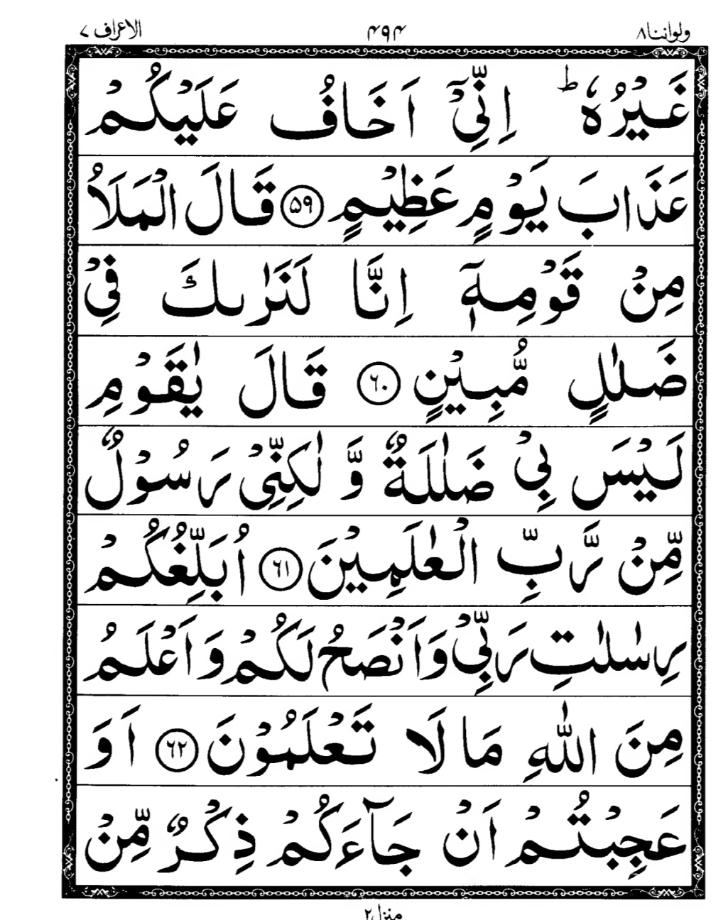 ولواننا ٨ ۴۹۴ الاعراف ۷
غَيْرُهٗ ؕ اِنِّيْۤ اَخَافُ عَلَيْكُمْ
عَذَابَ يَوْمٍ عَظِيْمٍ ۵۹ قَالَ الْمَلَاُ
مِنْ قَوْمِهٖۤ اِنَّا لَنَرٰىكَ فِيْ
ضَلٰلٍ مُّبِيْنٍ ۶۰ قَالَ يٰقَوْمِ
لَيْسَ بِيْ ضَلٰلَةٌ وَّ لٰكِنِّيْ رَسُوْلٌ
مِّنْ رَّبِّ الْعٰلَمِيْنَ ۶۱ اُبَلِّغُكُمْ
رِسٰلٰتِ رَبِّيْ وَاَنْصَحُ لَكُمْ وَاَعْلَمُ
مِنَ اللّٰهِ مَا لَا تَعْلَمُوْنَ ۶۲ اَوَ
عَجِبْتُمْ اَنْ جَآءَكُمْ ذِكْرٌ مِّنْ
منزل ۲